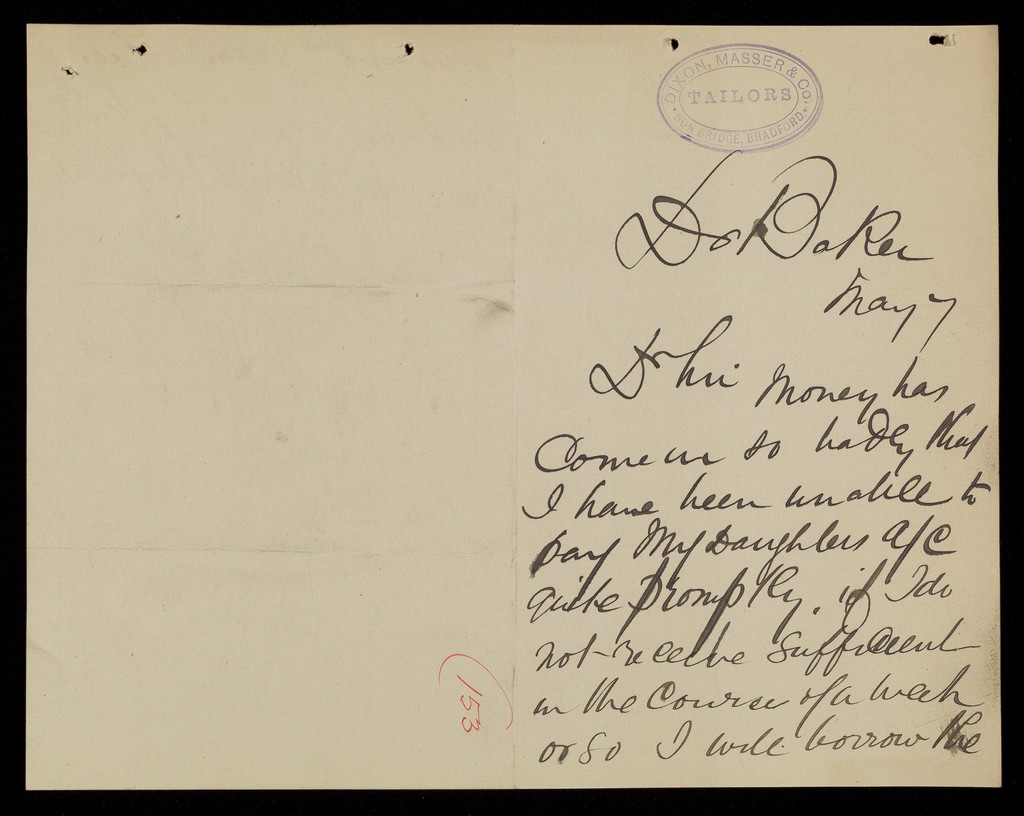 DIXON, MASSER & Co.
TAILORS
SUN BRIDGE, BRADFORD.
Dr Baker
May 7
Dr Sir Money has
Come in so badly that
I have been unable to
pay My Daughters a/c
quite promptly. if I do
not receive sufficient
in the Course of a week
or so I will borrow the
153